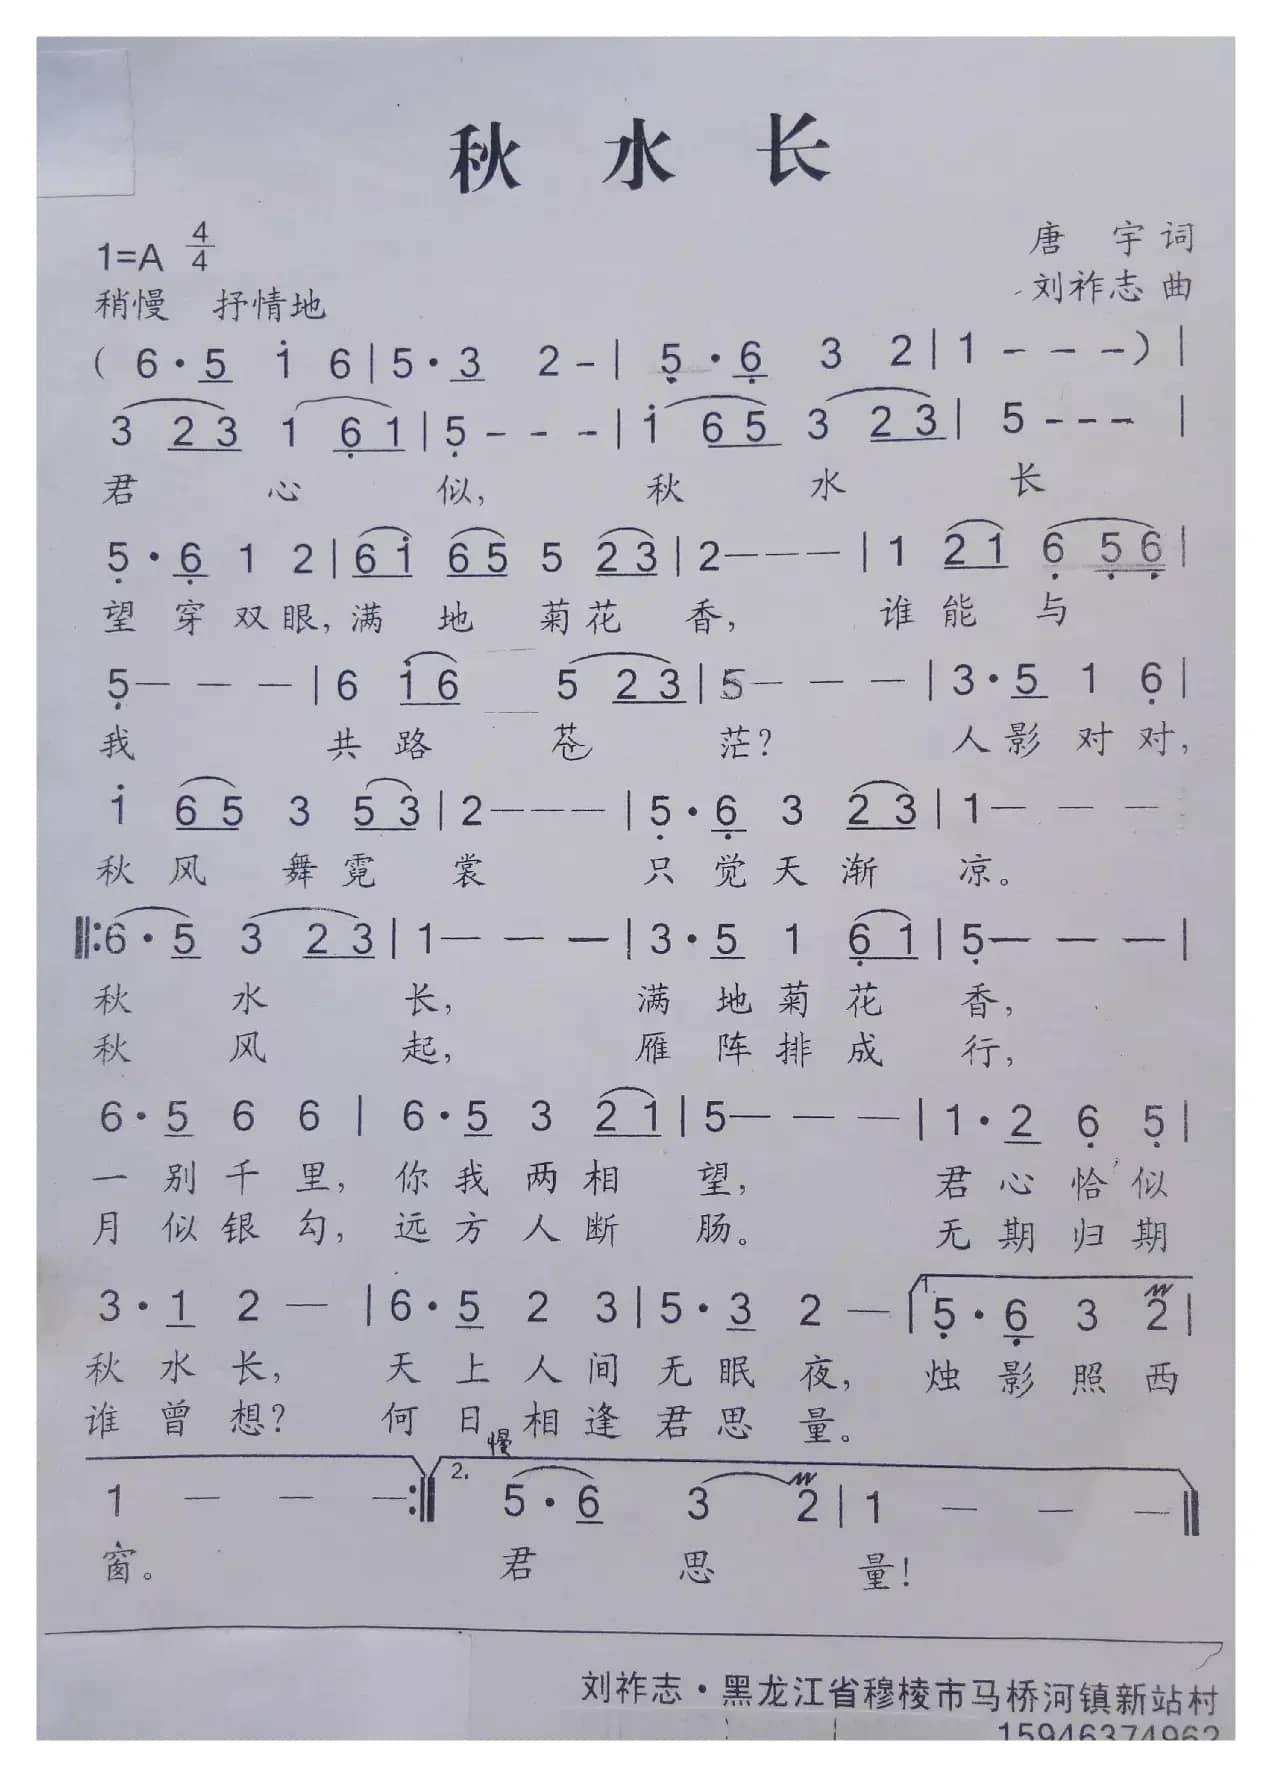 秋 水 长
1=A 4/4
唐 宇 词
稍慢 抒情地
刘祚志 曲
( 6·5 i 6 | 5·3 2 - | 5·6 3 2 | 1 - - - ) |
3 2 3 1 6 1 | 5 - - - | i 6 5 3 2 3 | 5 - - - |
君 心 似, 秋 水 长
5·6 1 2 | 6 i 6 5 5 2 3 | 2 - - - | 1 2 1 6 5 6 |
望 穿 双 眼, 满 地 菊 花 香, 谁 能 与
5 - - - | 6 i 6 5 2 3 | 5 - - - | 3·5 1 6 |
我 共 路 苍 茫? 人 影 对 对,
i 6 5 3 5 3 | 2 - - - | 5·6 3 2 3 | 1 - - -
秋 风 舞 霓 裳 只 觉 天 渐 凉。
‖: 6·5 3 2 3 | 1 - - - | 3·5 1 6 1 | 5 - - - |
秋 水 长, 满 地 菊 花 香,
秋 风 起, 雁 阵 排 成 行,
6·5 6 6 | 6·5 3 2 1 | 5 - - - | 1·2 6 5 |
一 别 千 里, 你 我 两 相 望, 君 心 恰 似
月 似 银 勾, 远 方 人 断 肠。 无 期 归 期
3·1 2 - | 6·5 2 3 | 5·3 2 - | 1. 5·6 3 2 |
秋 水 长, 天 上 人 间 无 眠 夜, 烛 影 照 西
谁 曾 想? 何 日 相 逢 君 思 量。
慢
1 - - - :‖ 2. 5·6 3 2 | 1 - - - ‖
窗。 君 思 量!
刘祚志·黑龙江省穆棱市马桥河镇新站村
15946374962